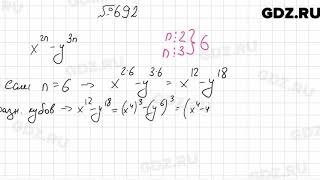 GDZ.RU
№692
x^{2n} - y^{3n}
n⋮2
n⋮3 } 6
Если n = 6 → x^{2·6} - y^{3·6} = x^{12} - y^{18}
разн. кубов → x^{12} - y^{18} = (x^4)^3 - (y^6)^3 = (x^4 - y
GDZ.RU